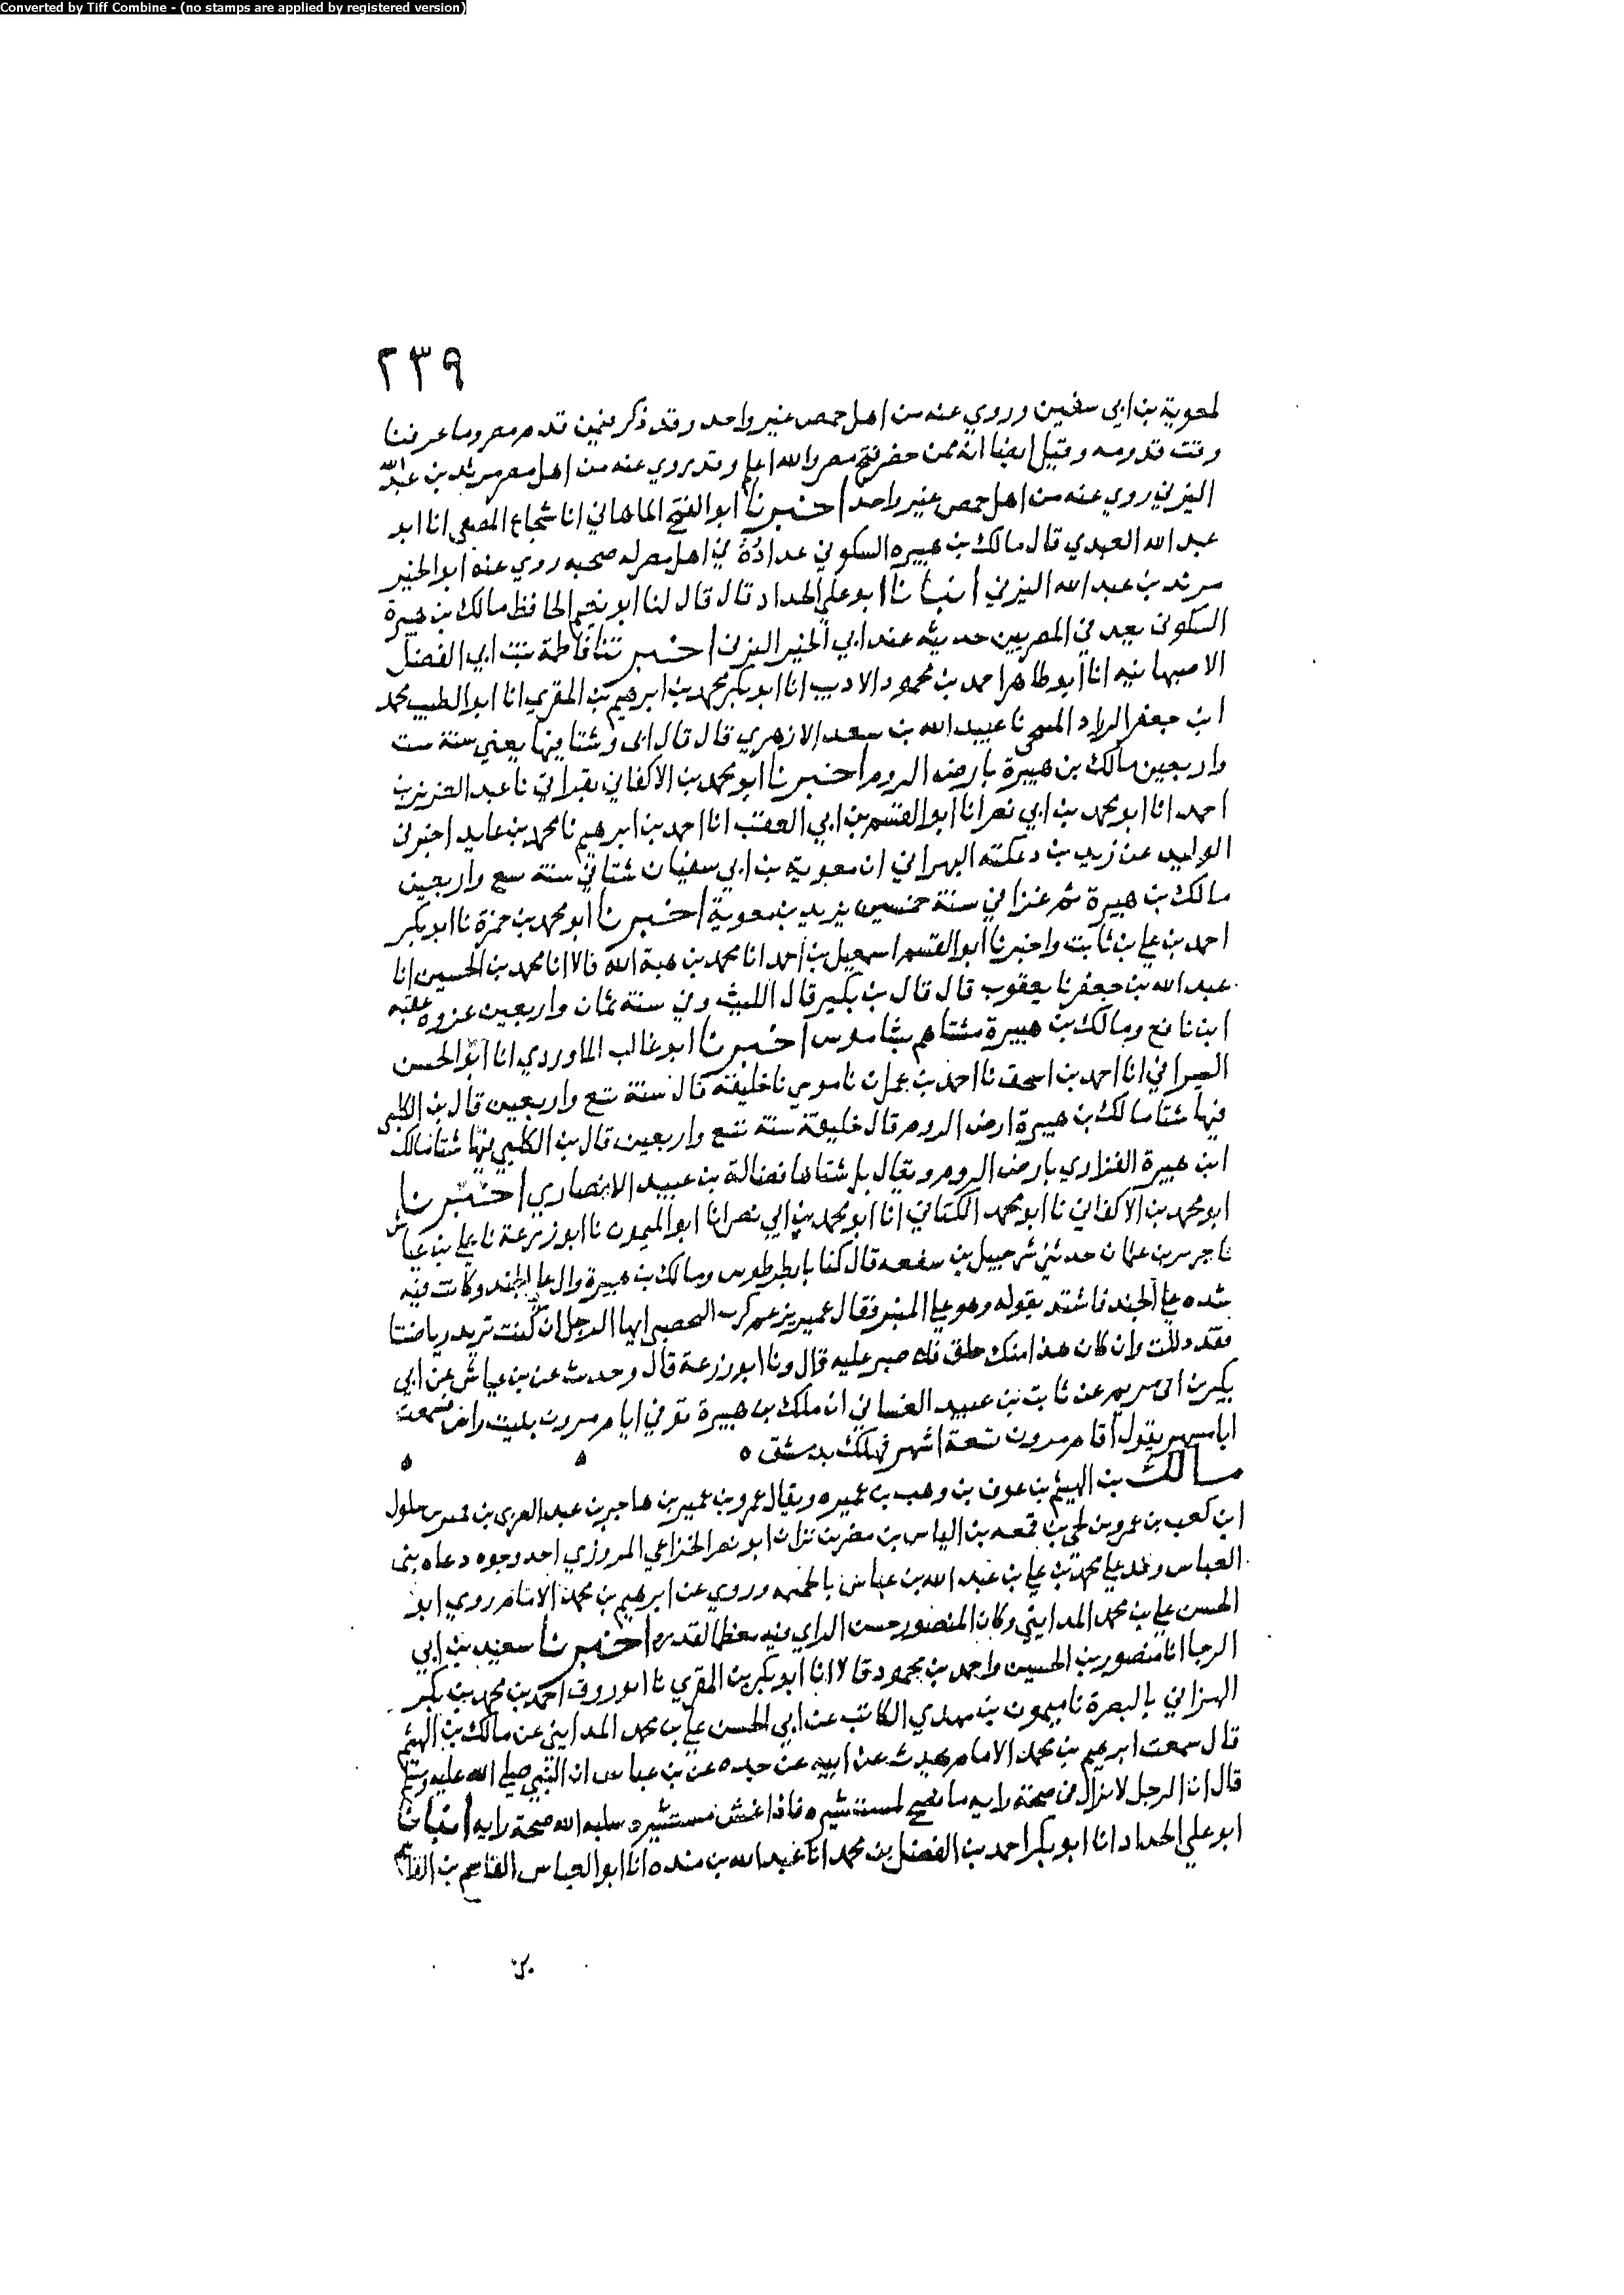 Converted by Tiff Combine - (no stamps are applied by registered version)
٢٣٩
لمعوية بن ابي سفين وروي عنه من اهل حمص غير واحد وقد ذكر فيمن قدم مصر وما عرفنا
وقت قدومه وقيل ايضا انه ممن حضر فتح مصر والله اعلم وقد روي عنه من اهل مصر مرثد بن عبد الله
اليزني روي عنه من اهل حمص غير واحد اخبرنا ابو الفتح الماهاني انا شجاع المصقلي انا ابو
عبد الله العبدي قال مالك بن هبيره السكوني عداده في اهل مصر له صحبه روي عنه ابو الخير
مرثد بن عبد الله اليزني انبانا ابو علي الحداد قال قال لنا ابو نعيم الحافظ مالك بن هبيرة
السكوني يعد في المصريين حديثه عند ابي الخير اليزني اخبرتنا فاطمة بنت ابي الفضل
الاصبهانيه انا ابو طاهر احمد بن محمود الاديب انا ابو بكر محمد بن ابرهيم بن المقري انا ابو الطيب محمد
ابن جعفر الزراد المنبجي نا عبيد الله بن سعد الازهري قال قال ابي وشتا فيها يعني سنة ست
واربعين مالك بن هبيرة بارض الروم اخبرنا ابو محمد بن الاكفاني بقراتي نا عبد العزيز بن
احمد انا ابو محمد بن ابي نصر انا ابو القسم بن ابي العقب انا احمد بن ابرهيم نا محمد بن عايد اخبرني
الوليد عن زيد بن دعكنه البهراني ان معوية بن ابي سفيان شتا في سنة سع واربعين
مالك بن هبيرة ثم غزا في سنة خمسين يزيد بن معوية اخبرنا ابو محمد بن حمزة نا ابو بكر
احمد بن علي بن ثابت واخبرنا ابو القسم اسمعيل بن احمد انا محمد بن هبة الله قالا انا محمد بن الحسين انا
عبد الله بن جعفر نا يعقوب قال قال بن بكير قال الليث وفي سنة ثمان واربعين غزوه عقبه
ابن نافع ومالك بن هبيرة مشتاهم اخبرنا ابو غالب الماوردي انا ابو الحسن
السيرافي انا احمد بن اسحق نا احمد بن عمران نا موسى نا خليفة قال سنة تسع واربعين قال بن الكلبي
فيها شتا مالك بن هبيرة ارض الروم قال خليفة سنة تسع واربعين قال بن الكلبي فيها شتا مالك
ابن هبيرة الفزاري بارض الروم ويقال بل شتاها فضالة بن عبيد الانصاري اخبرنا
ابو محمد بن الاكفاني نا ابو محمد الكتاني انا ابو محمد بن ابي نصر انا ابو الميمون نا ابو زرعة نا علي بن عياش
نا حريز بن عثمان حدثني شرحبيل بن سفعه قال كنا بانطرطوس ومالك بن هبيرة وال علي الجند وكانت فيه
شده علي الجند فاشتد بقوله وهو علي المنبر فقال عمير بن عمركرب اليحصبي ايها الرجل ان كنت تريد رياضتنا
فقد ذللت وان كان هذا منك خلق فلا صبر عليه قال ونا ابو زرعة قال وحدثت عن بن عياش عن ابي
بكر بن ابي مريم عن ثابت بن عبيد الغساني ان ملك بن هبيرة توفي ايام مرون ببيت راس سمعت
ابا مسهر يقول اقام مرون تسعة اشهر فهلك بدمشق ه
مالك بن الهيثم بن عوف بن وهب بن عميره ويقال عمرو بن عمير بن هاجر بن عبد العزى بن قمير بن سلول
ابن كعب بن عمرو بن لحي بن قمعه بن الياس بن مضر بن نزار ابو نصر الخزاعي المروزي احد وجوه دعاه بني
العباس وفد علي محمد بن علي بن عبد الله بن عباس بالحميمه وروي عن ابرهيم بن محمد الامام روي ابو
الحسن علي بن محمد المدايني وكان المنصور حسن الراي فيه معظما لقدره اخبرنا سعيد بن ابي
الرجا انا منصور بن الحسين واحمد بن محمود قالا انا ابو بكر بن المقري نا ابو روق احمد بن محمد بن بكر
الهزاني بالبصرة نا ميمون بن مهدي الكاتب عن ابي الحسن علي بن محمد المدايني عن مالك بن الهيثم
قال سمعت ابرهيم بن محمد الامام يحدث عن ابيه عن جده عن بن عباس ان النبي صلي الله عليه وسلم
قال ان الرجل لا يزال في صحة رايه ما نصح لمستشيره فاذا غش مستشيره سلبه الله صحة رايه انبانا
ابو علي الحداد انا ابو بكر احمد بن الفضل بن محمد انا عبد الله بن منده انا ابو العباس القاسم بن القاسم